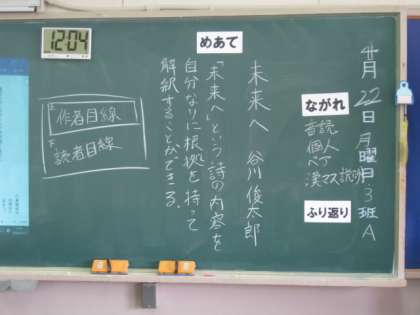 4月22日月曜日3班A
ながれ
音読
個人
ペア
漢マス説明
ふり返り
未来へ 谷川俊太郎
めあて
「未来へ」という詩の内容を
自分なりに根拠を持って
解釈することができる。
12:04
作者目線
読者目線